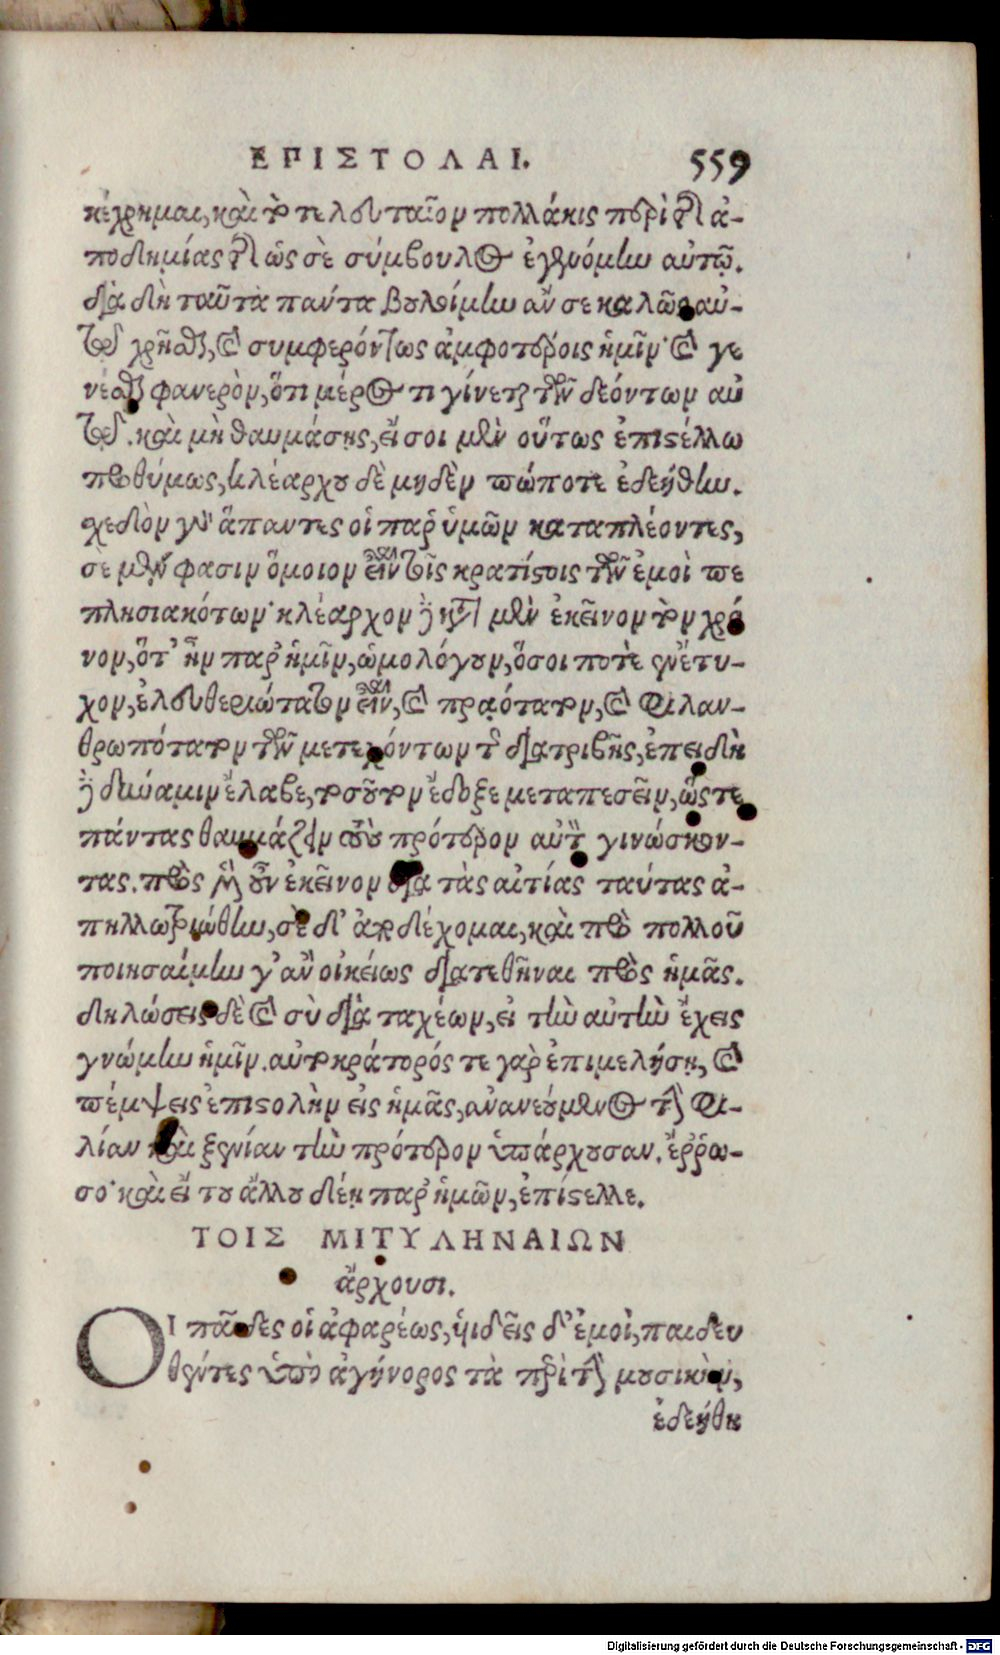 ΕΠΙΣΤΟΛΑΙ. 559
κέχρημαι, καὶ τὸ τελευταῖον πολλάκις περὶ τῆς ἀ-
ποδημίας τῆς ὡς σὲ σύμβουλος ἐγενόμην αὐτῷ.
διὰ δὴ ταῦτα πάντα βουλοίμην ἄν σε καλῶς αὐ-
τῷ χρῆσθαι, καὶ συμφερόντως ἀμφοτέροις ἡμῖν· καὶ γε
νέσθαι φανερὸν, ὅτι μέρος τι γίνεται τῶν δεόντων αὐ
τῷ. καὶ μὴ θαυμάσῃς, εἴ σοι μὲν οὕτως ἐπιστέλλω
προθύμως, κλέαρχου δὲ μηδὲν πώποτε ἐδεήθην.
σχεδὸν γὰρ ἅπαντες οἱ παρ' ὑμῶν καταπλέοντες,
σὲ μὲν φασιν ὅμοιον εἶναι τοῖς κρατίστοις τῶν ἐμοὶ πε
πλησιακότων· κλέαρχον γὰρ κατὰ μὲν ἐκεῖνον τὸν χρό
νον, ὅτ' ἦν παρ' ἡμῖν, ὡμολόγουν, ὅσοι ποτὲ ἐνέτυ-
χον, ἐλευθεριώτατον εἶναι, καὶ πραότατον, καὶ φιλαν-
θρωπότατον τῶν μετεχόντων τῆς διατριβῆς, ἐπειδὴ
δὲ δύναμιν ἔλαβε, τοσοῦτον ἔδοξε μεταπεσεῖν, ὥστε
πάντας θαυμάζειν τοὺς πρότερον αὐτὸν γινώσκον-
τας. πρὸς μὲν οὖν ἐκεῖνον διὰ τὰς αἰτίας ταύτας ἀ-
πηλλοτριώθην, σὲ δ' ἀποδέχομαι, καὶ πρὸ πολλοῦ
ποιησαίμην γ' ἂν οἰκείως διατεθῆναι πρὸς ἡμᾶς.
δηλώσεις δὲ καὶ σὺ διὰ ταχέων, εἰ τὴν αὐτὴν ἔχεις
γνώμην ἡμῖν. αὐτοκράτορός τε γὰρ ἐπιμελήσῃ, καὶ
πέμψεις ἐπιστολὴν εἰς ἡμᾶς, ἀνανεούμενος τὴν φι-
λίαν καὶ ξενίαν τὴν πρότερον ὑπάρχουσαν. ἔρρω-
σο· καὶ εἴ του ἄλλου δέῃ παρ' ἡμῶν, ἐπίστελλε.
ΤΟΙΣ ΜΙΤΥΛΗΝΑΙΩΝ
ἄρχουσι.
ΟΙ παῖδες οἱ ἀφαρέως, υἱιδεῖς δ' ἐμοὶ, παιδευ
θέντες ὑπὸ ἀγήνορος τὰ περὶ τὴν μουσικὴν,
ἐδεήθη
Digitalisierung gefördert durch die Deutsche Forschungsgemeinschaft - DFG